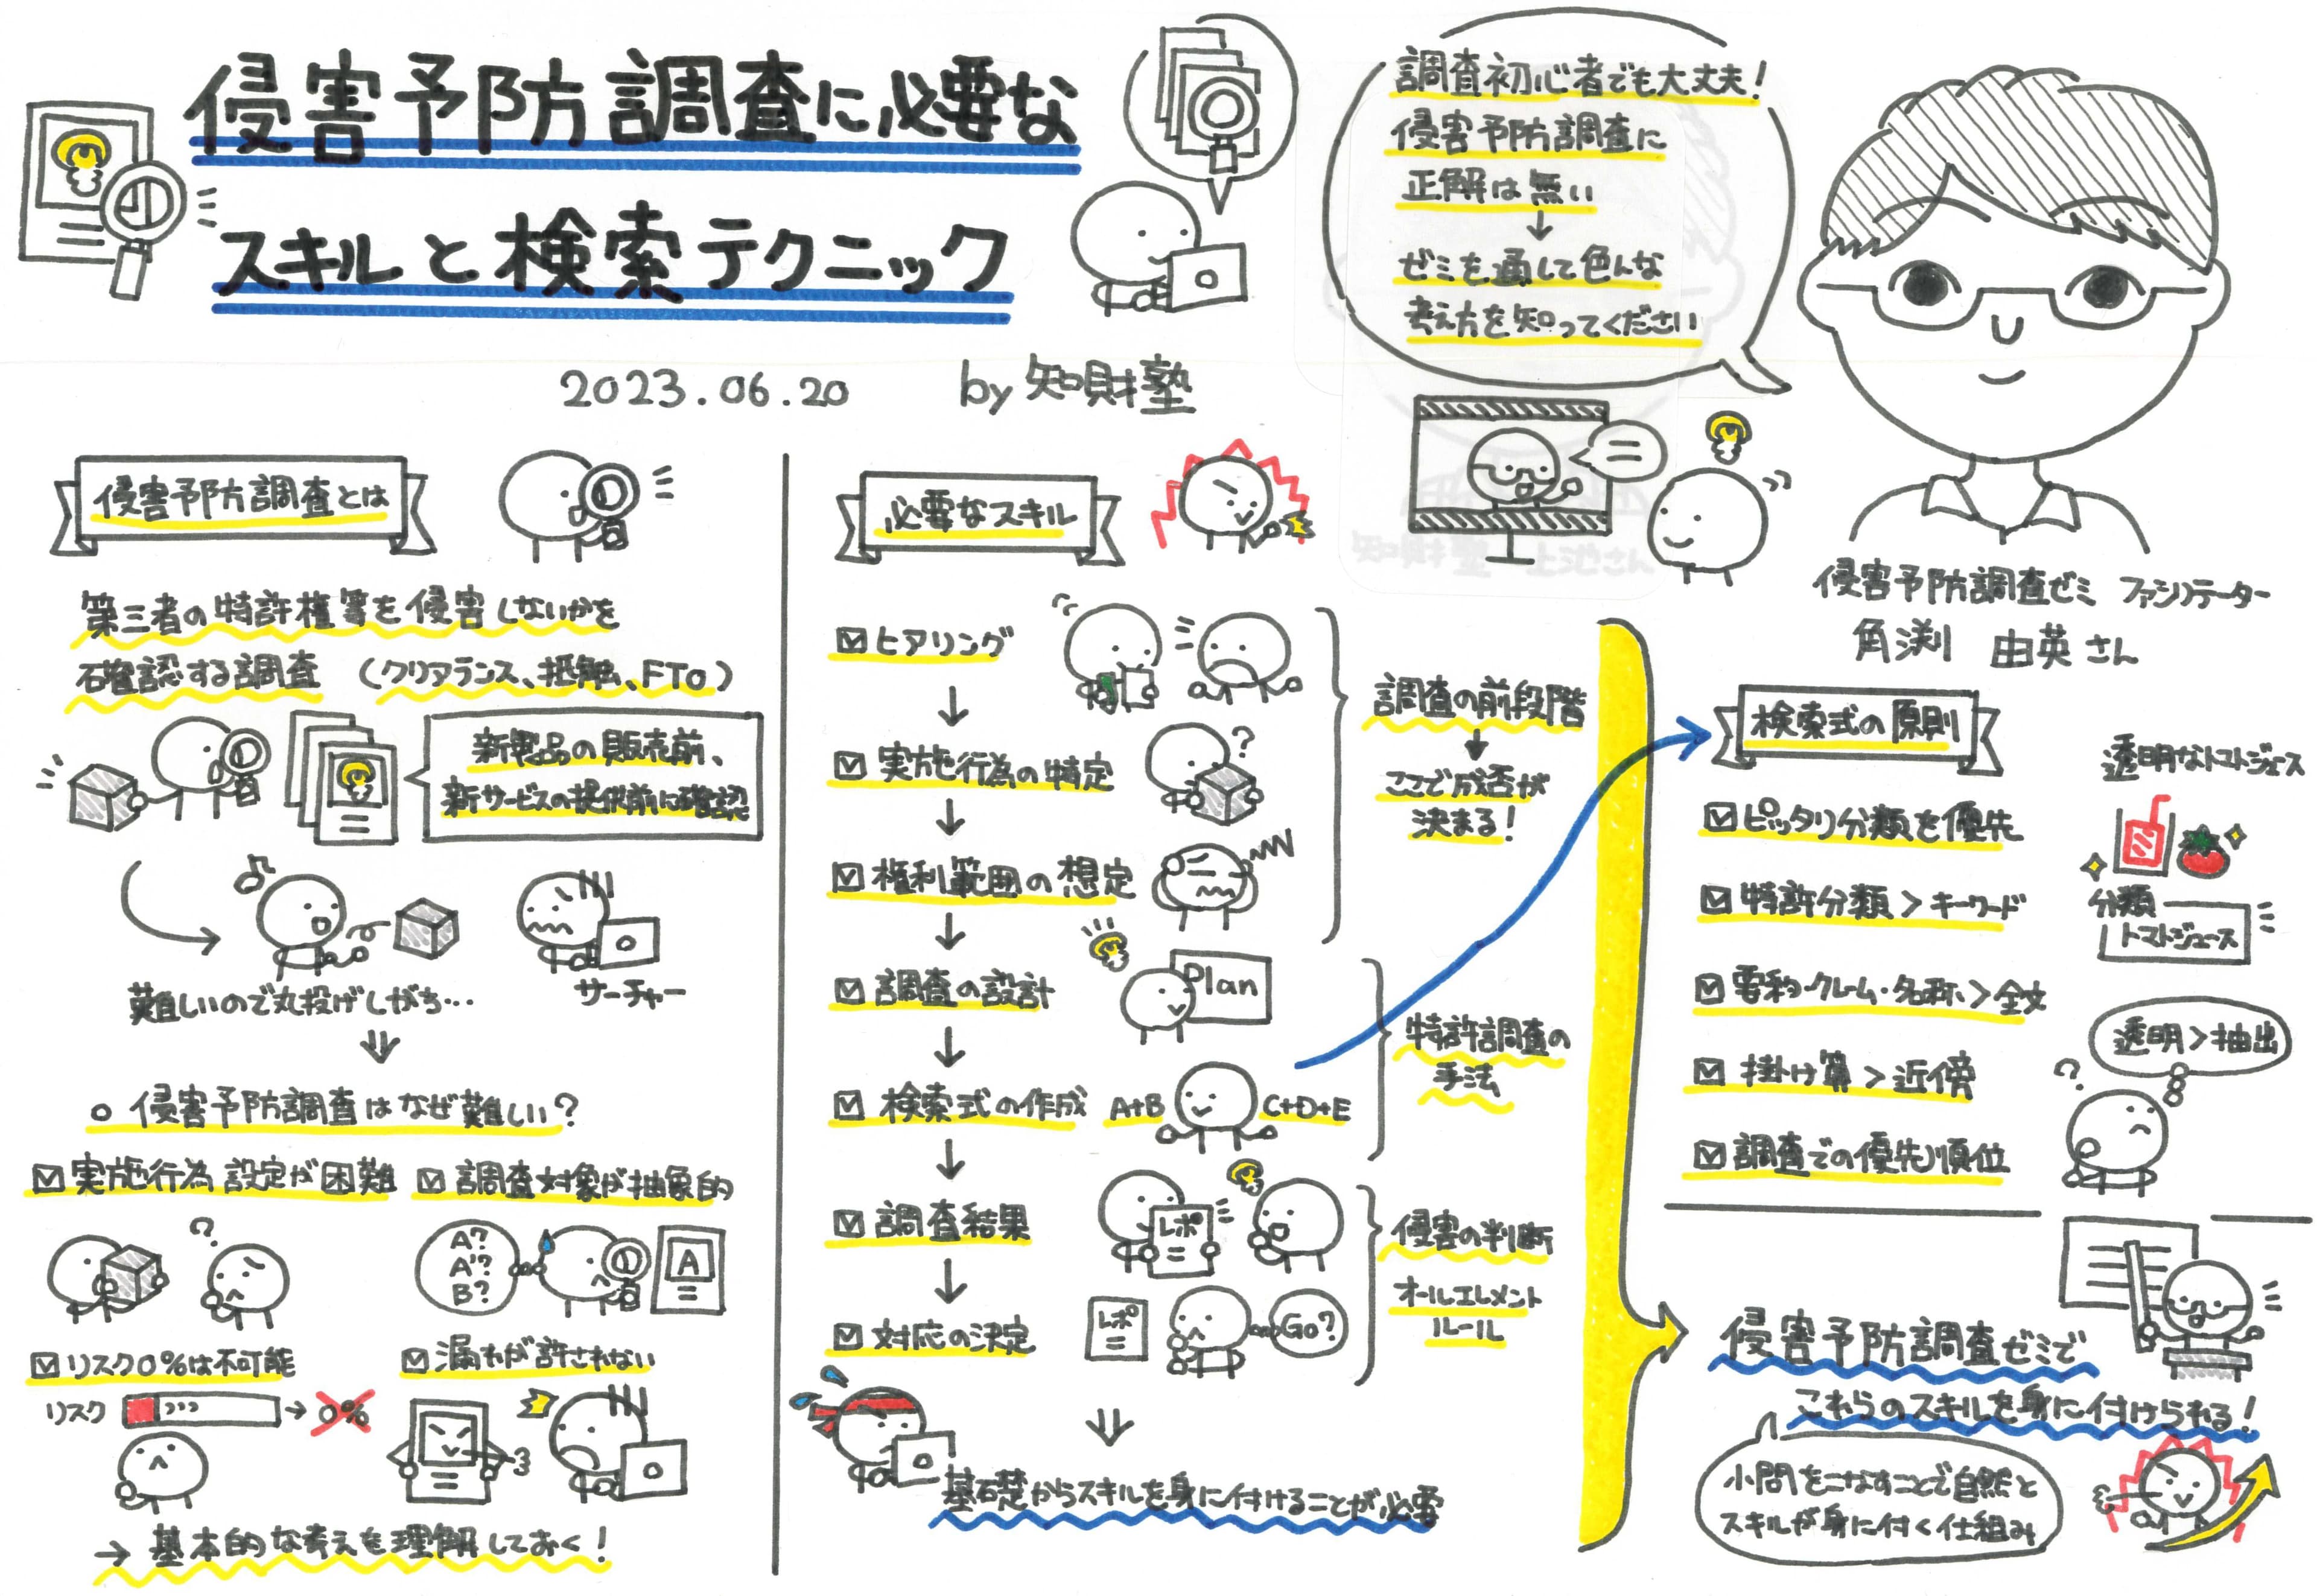 侵害予防調査に必要な
スキルと検索テクニック
2023.06.20 by 知財塾
調査初心者でも大丈夫!
侵害予防調査に
正解は無い
↓
ゼミを通して色んな
考え方を知ってください
侵害予防調査ゼミ ファシリテーター
角渕 由英さん
侵害予防調査とは
第三者の特許権等を侵害しないかを
確認する調査 (クリアランス、抵触、FTO)
新製品の販売前、
新サービスの提供前に確認
難しいので丸投げしがち…
サーチャー
⇓
○ 侵害予防調査はなぜ難しい?
☑ 実施行為設定が困難
☑ 調査対象が抽象的
A?
A'?
B?
A
☑ リスク0%は不可能
リスク → 0%
☑ 漏れが許されない
→ 基本的な考えを理解しておく!
必要なスキル
☑ ヒアリング
↓
☑ 実施行為の特定
↓
☑ 権利範囲の想定
↓
☑ 調査の設計
Plan
↓
☑ 検索式の作成
A+B C+D+E
↓
☑ 調査結果
レポ
↓
☑ 対応の決定
レポ
Go?
調査の前段階
↓
ここで成否が
決まる!
特許調査の
手法
侵害の判断
オールエレメント
ルール
⇓
基礎からスキルを身に付けることが必要
検索式の原則
☑ ピッタリ分類を優先
☑ 特許分類 > キーワード
☑ 要約・クレーム・名称 > 全文
☑ 掛け算 > 近傍
☑ 調査での優先順位
透明なトマトジュース
分類
トマトジュース
透明 > 抽出
侵害予防調査ゼミで
これらのスキルを身に付けられる!
小問をこなすことで自然と
スキルが身に付く仕組み